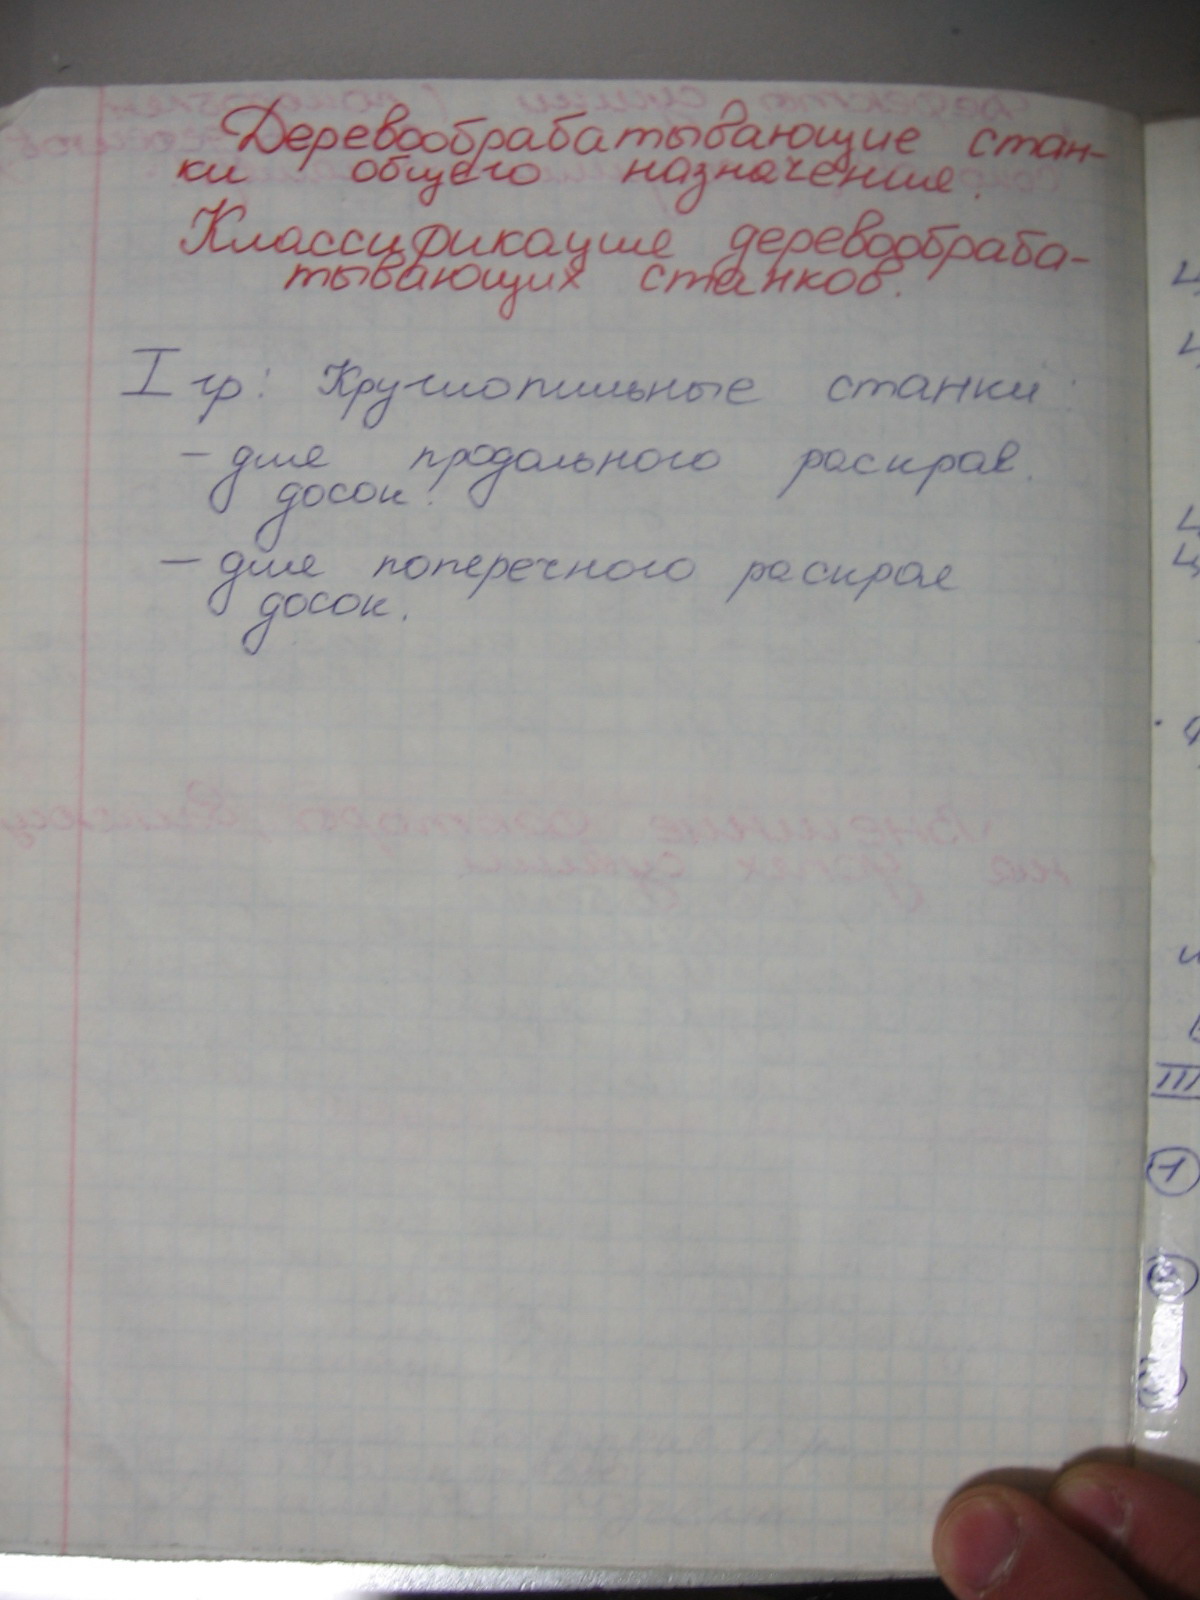 Деревообрабатывающие стан-
ки общего назначения.
Классификация деревообраба-
тывающих станков.
I гр: Круглопильные станки:
- для продольного раскрая
досок.
- для поперечного раскроя
досок.
III
1